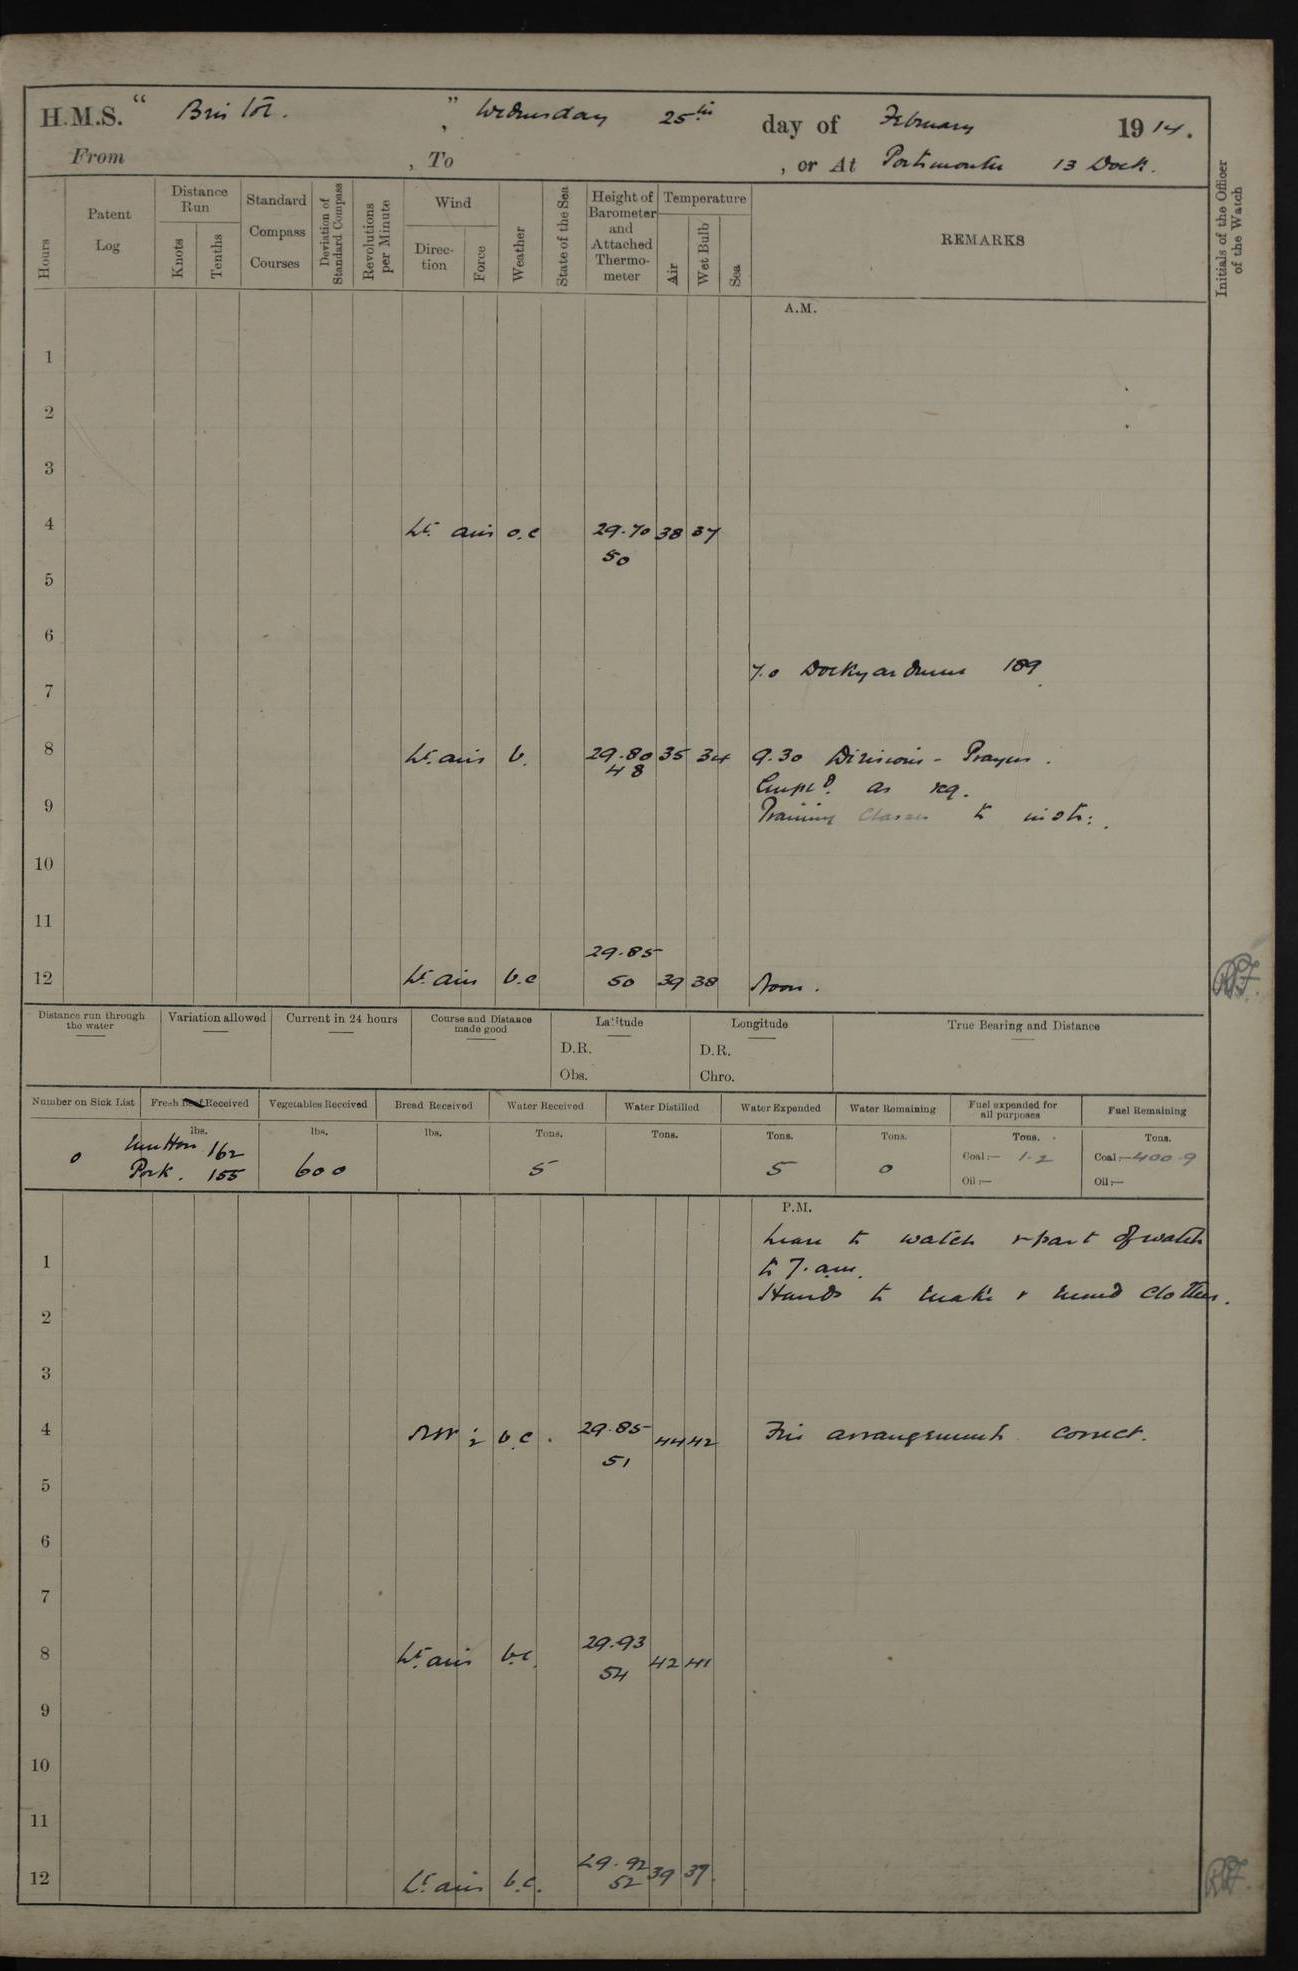 H.M.S. "Bristol.", Wednesday 25th day of February 1914.
From , To , or At Portsmouth 13 Dock.
Hours
Patent Log
Distance Run
Knots
Tenths
Standard Compass Courses
Deviation of Standard Compass
Revolutions per Minute
Wind
Direction
Force
Weather
State of the Sea
Height of Barometer and Attached Thermometer
Temperature
Air
Wet Bulb
Sea
REMARKS
Initials of the Officer of the Watch
A.M.
1
2
3
4 Lt. airs o.c 29.70 38 37
50
5
6
7.0 Dockyardmen 189
7
8 Lt. airs b. 29.80 35 34 9.30 Divisions - Prayers.
48
Empld. as req.
9 Training Classes to instr:.
10
11
29.85
12 Lt. airs b.c 50 39 38 Noon.
Distance run through the water
Variation allowed
Current in 24 hours
Course and Distance made good
Latitude
D.R.
Obs.
Longitude
D.R.
Chro.
True Bearing and Distance
Number on Sick List
Fresh Beef Received
Vegetables Received
Bread Received
Water Received
Water Distilled
Water Expended
Water Remaining
Fuel expended for all purposes
Fuel Remaining
lbs. lbs. lbs. Tons. Tons. Tons. Tons. Tons. Tons.
0 Mutton 162 Coal:— 1.2 Coal:— 400.9
Pork. 155 600 5 5 0
Oil:— Oil:—
P.M.
Leave to watch & part of watch
1 to 7.am.
Hands to make & mend clothes.
2
3
4 NW 1-2 b.c. 29.85 44 42 Fire arrangements correct.
51
5
6
7
8 Lt. airs b.c. 29.93 42 41
54
9
10
11
12 Lt. airs b.c. 29.92 39 37.
52